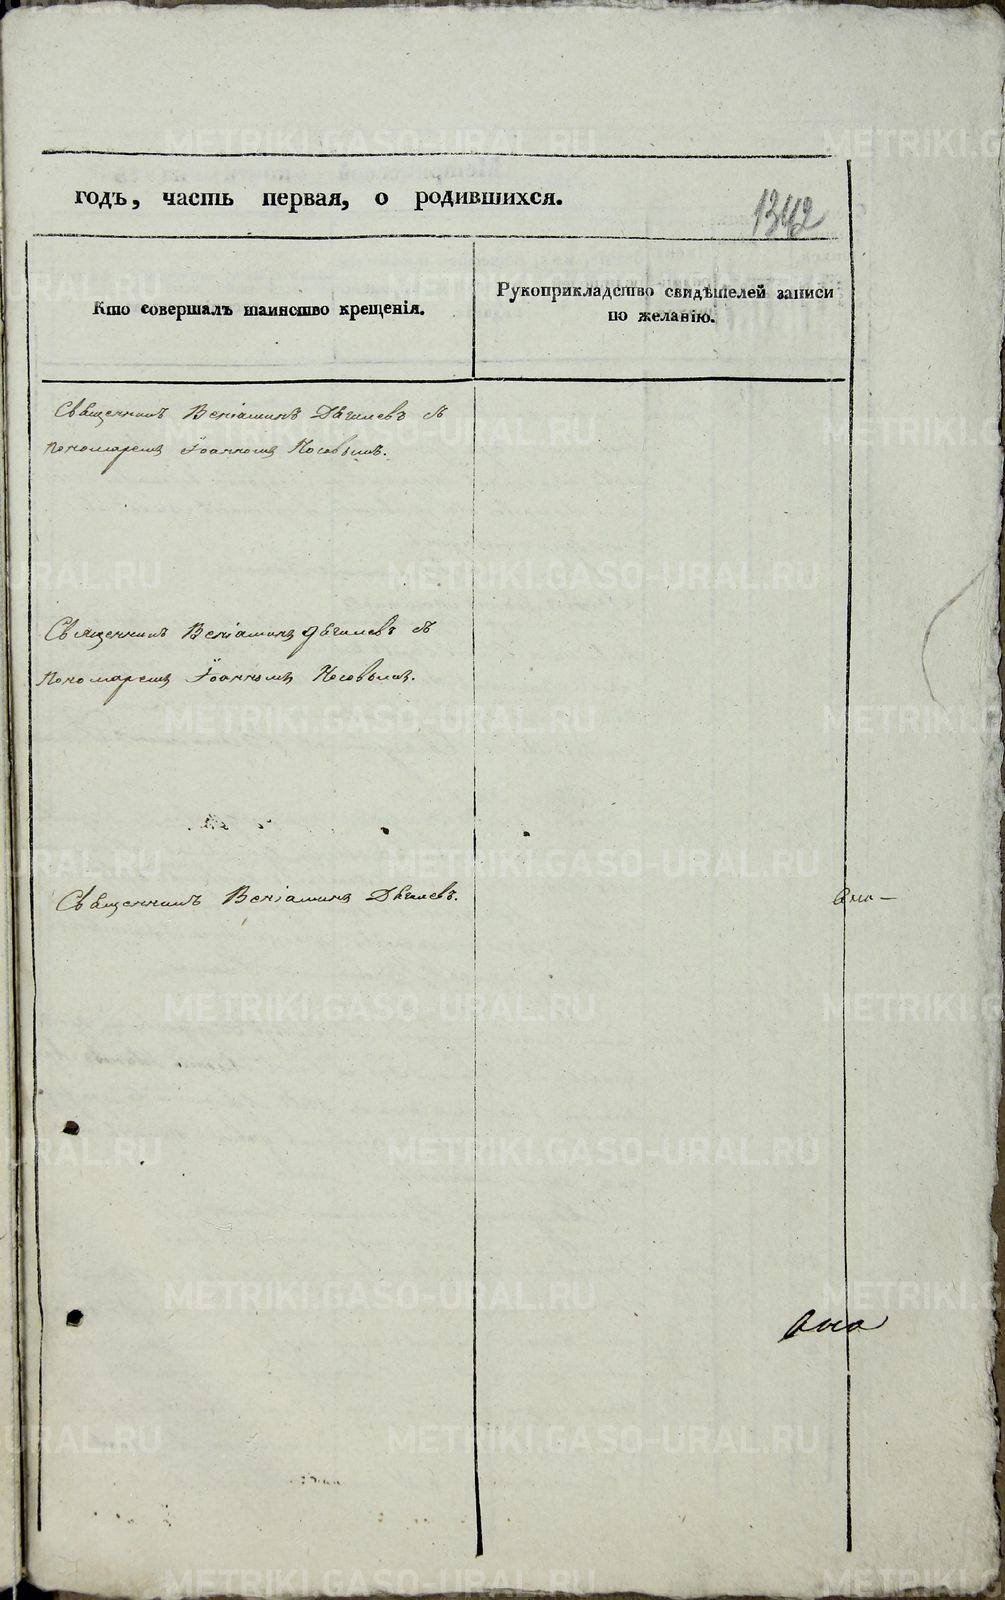 годъ, часть первая, о родившихся.
1342
Кто совершалъ таинство крещенія.
Рукоприкладство свидѣтелей записи
по желанію.
Священникъ Веніаминъ Дягилевъ съ
пономаремъ Іоанномъ Носовымъ.
Священникъ Веніаминъ Дягилевъ съ
Пономаремъ Іоанномъ Носовымъ.
Священникъ Веніаминъ Дягилевъ.
METRIKI.GASO-URAL.RU